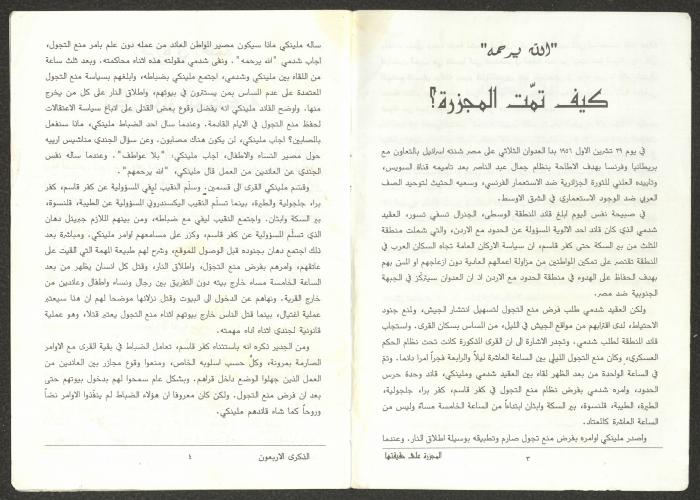 "الله يرحمه"
كيف تمّت المجزرة؟
في يوم ٢٩ تشرين الاول ١٩٥٦ بدا العدوان الثلاثي على مصر شنته اسرائيل بالتعاون مع
بريطانيا وفرنسا بهدف الاطاحة بنظام جمال عبد الناصر بعد تاميمه قناة السويس،
وتاييده العلني للثورة الجزائرية ضد الاستعمار الفرنسي، وسعيه الحثيث لتوحيد الصف
العربي ضد الوجود الاستعماري في الشرق الاوسط.
في صبيحة نفس اليوم ابلغ قائد المنطقة الوسطى، الجنرال تسفي تسور، العقيد
شدمي الذي كان قائد احد الالوية المسؤولة عن الحدود مع الاردن، والتي شملت منطقة
المثلث من بير السكة حتى كفر قاسم، ان سياسة الاركان العامة تجاه السكان العرب في
المنطقة تقتصر على تمكين المواطنين من مزاولة اعمالهم العادية دون ازعاجهم او المس بهم
بهدف الحفاظ على الهدوء في منطقة الحدود مع الاردن اذ ان العدوان سيتركّز في الجبهة
الجنوبية ضد مصر.
ولكن العقيد شدمي طلب فرض منع التجول لتسهيل انتشار الجيش، ولمنع جنود
الاحتياط، لدى اقترابهم من مواقع الجيش في الليل، من المساس بسكان القرى. واستجاب
قائد المنطقة لطلب شدمي، وتجدر الاشارة الى ان القرى المذكورة كانت تحت نظام الحكم
العسكري، وكان منع التجول الليلي بين الساعة العاشرة ليلاً والرابعة فجراً امرا دائما. وتمّ
في الساعة الواحدة من بعد الظهر لقاء بين العقيد شدمي وملينكي، قائد وحدة حرس
الحدود، وامره شدمي بفرض نظام منع التجول في كفر قاسم، كفر برا، جلجولية،
الطيرة، الطيبة، قلنسوة، بير السكة وابثان ابتداءً من الساعة الخامسة مساءً وليس من
الساعة العاشرة كالمعتاد.
واصدر ملينكي اوامره بفرض منع تجول صارم وتطبيقه بوسيلة اطلاق النار. وعندما
٣
المجزرة على حقيقتها
ساله ملينكي ماذا سيكون مصير المواطن العائد من عمله دون علم بامر منع التجول،
اجاب شدمي "الله يرحمه". ونفى شدمي مقولته هذه اثناء محاكمته. وبعد ثلث ساعة
من اللقاء بين ملينكي وشدمي، اجتمع ملينكي بضباطه، وابلغهم بسياسة منع التجول
المعتمدة على عدم المساس بمن يستترون في بيوتهم، واطلاق النار على كل من يخرج
منها. واوضح القائد ملينكي انه يفضل وقوع بعض القتلى على اتباع سياسة الاعتقالات
لحفظ منع التجول في الايام القادمة. وعندما سال احد الضباط ملينكي، ماذا سنفعل
بالمصابين؟ اجاب ملينكي، لن يكون هناك مصابون. وعن سؤال الجندي مناشيس ارييه
حول مصير النساء والاطفال، اجاب ملينكي، "بلا عواطف". وعندما ساله نفس
الجندي عن العائدين من العمل قال ملينكي، "الله يرحمهم".
وقسّم ملينكي القرى الى قسمين. وسلّم النقيب ليفي المسؤولية عن كفر قاسم، كفر
برا، جلجولية والطيرة، بينما تسلّم النقيب اليكسندروني المسؤولية عن الطيبة، قلنسوة،
بير السكة وابثان. واجتمع النقيب ليفي مع ضباطه، ومن بينهم الملازم جبرئيل دهان
الذي تسلّم المسؤولية عن كفر قاسم، وكرّر على مسامعهم اوامر ملينكي. ومباشرة بعد
ذلك اجتمع دهان بجنوده قبل الوصول للموقع، وشرح لهم طبيعة المهمة التي القيت على
عاتقهم، وامرهم بفرض منع التجول، واطلاق النار، وقتل كل انسان يظهر من بعد
الساعة الخامسة مساء خارج بيته دون التفريق بين رجال ونساء واطفال وعائدين من
خارج القرية. ونهاهم عن الدخول الى البيوت وقتل نزلائها موضحا لهم ان هذا سيعتبر
عملية اغتيال، بينما قتل الناس خارج بيوتهم اثناء منع التجول يعتبر قتلا، وهو عملية
قانونية لجندي اثناء اداء مهمته.
ومن الجدير ذكره انه باستثناء كفر قاسم، تعامل الضباط في بقية القرى مع الاوامر
الصارمة بمرونة، وكلّ حسب اسلوبه الخاص، ومنعوا وقوع مجازر بين العائدين من
العمل الذين جهلوا الوضع داخل قراهم. وبشكل عام سمحوا لهم بدخول بيوتهم حتى
بعد ان فرض منع التجول. ولكن كان معروفا ان هؤلاء الضباط لم ينفّذوا الاوامر نصّاً
وروحاً كما شاء قائدهم ملينكي.
٤
الذكرى الاربعون